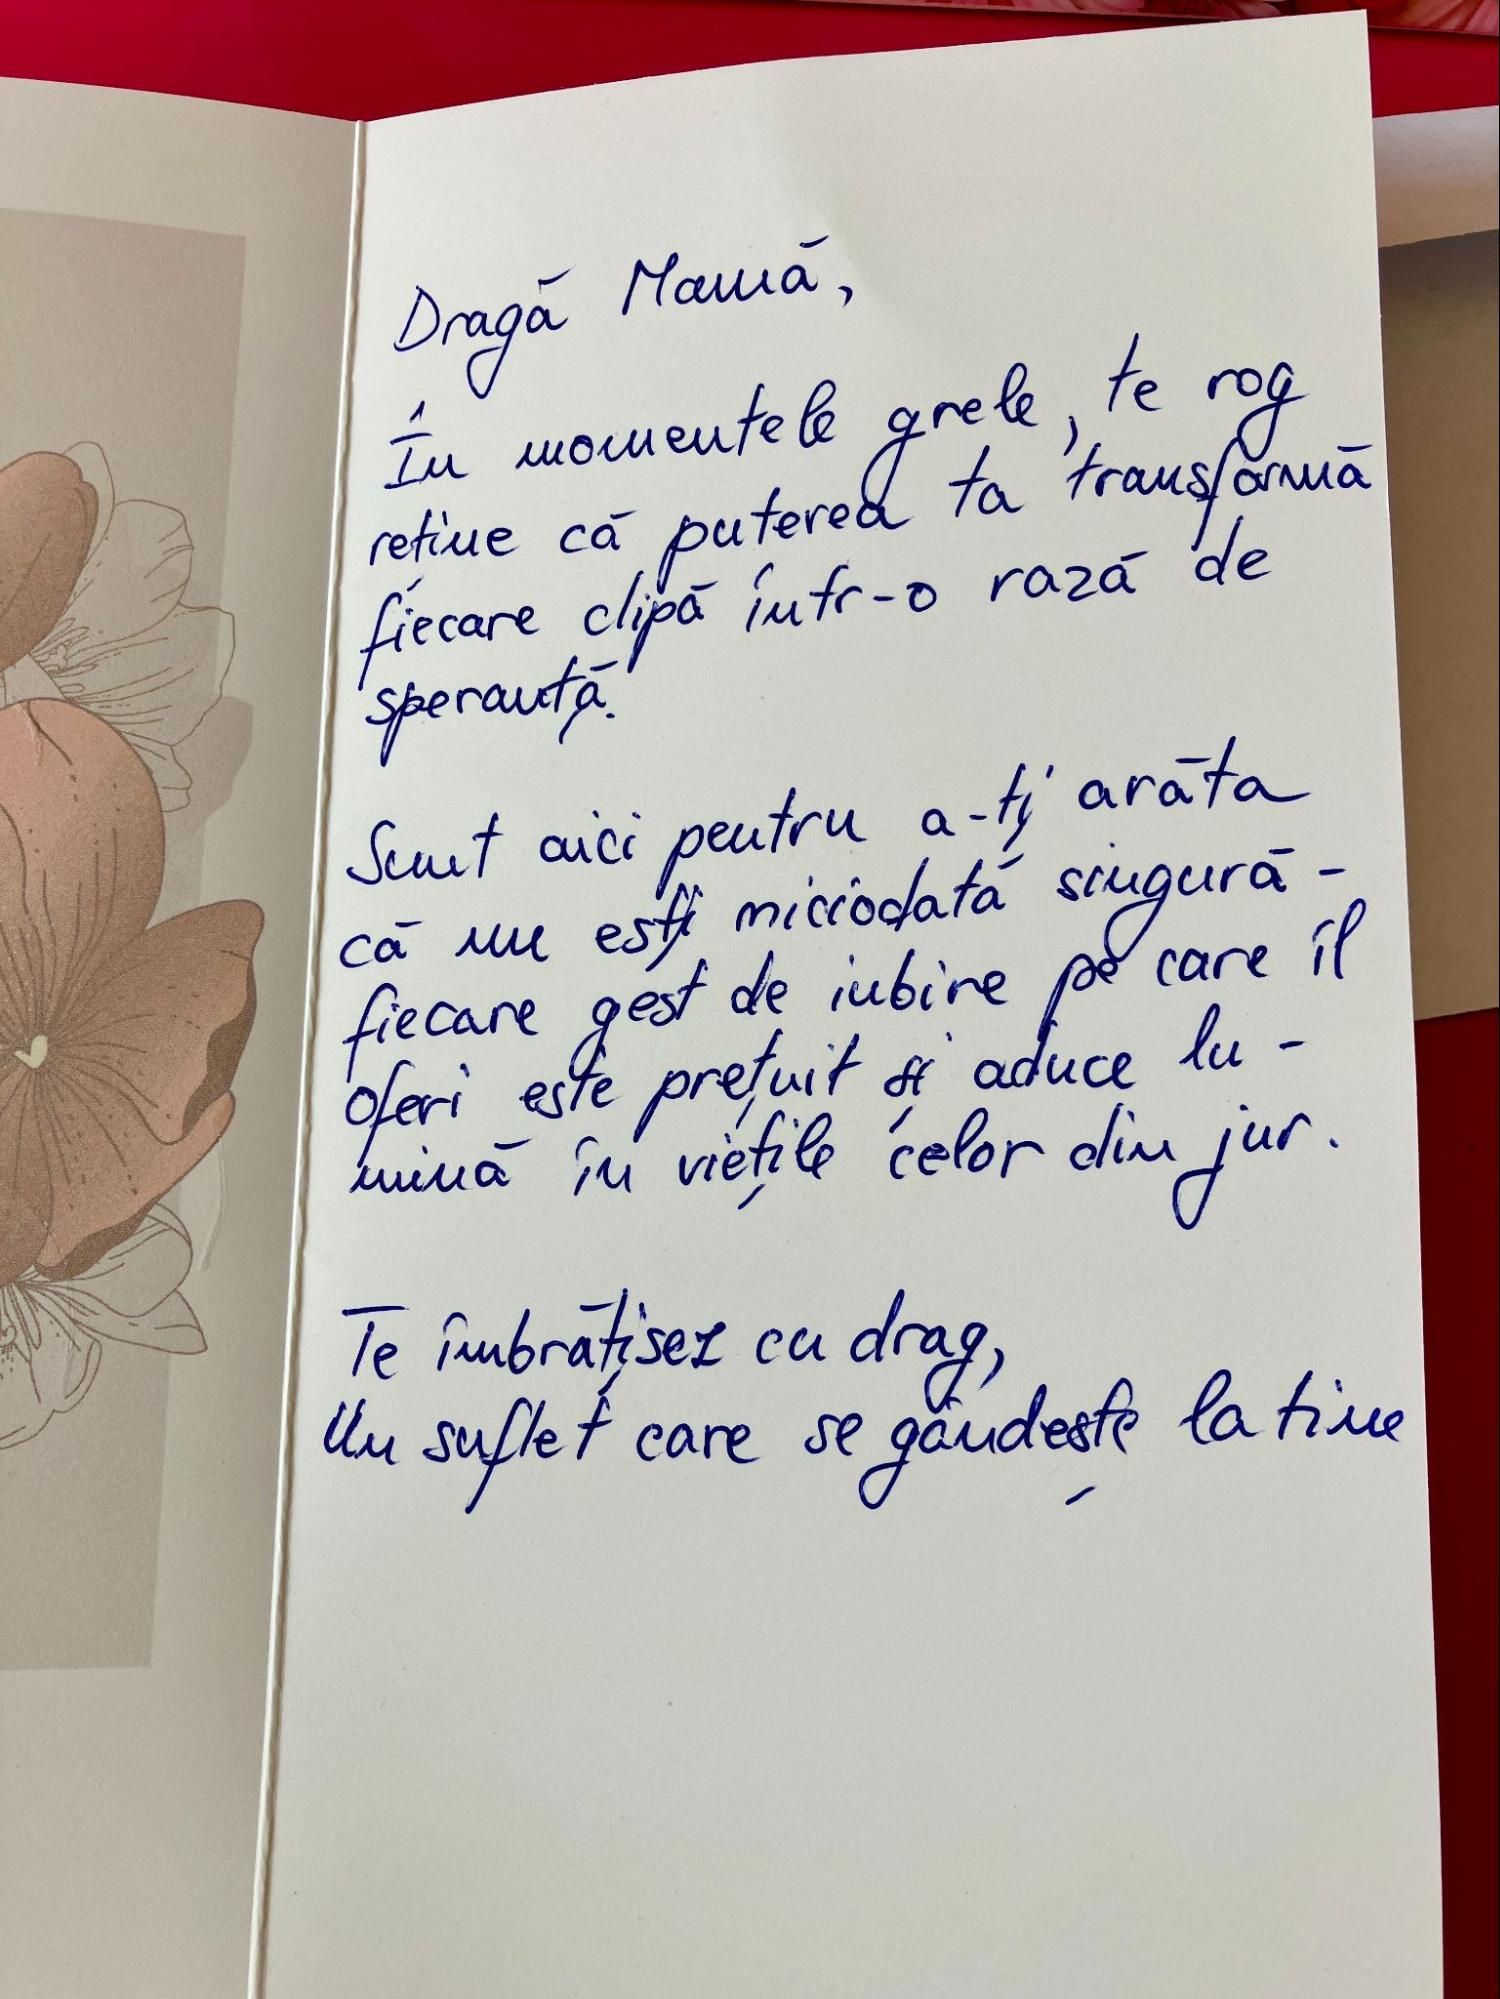 Dragă Mamă,
În momentele grele, te rog
reține că puterea ta transformă
fiecare clipă într-o rază de
speranță.
Sunt aici pentru a-ți arăta
că nu ești niciodată singură -
fiecare gest de iubire pe care îl
oferi este prețuit și aduce lu-
mină în viețile celor din jur.
Te îmbrățisez cu drag,
Un suflet care se gândește la tine